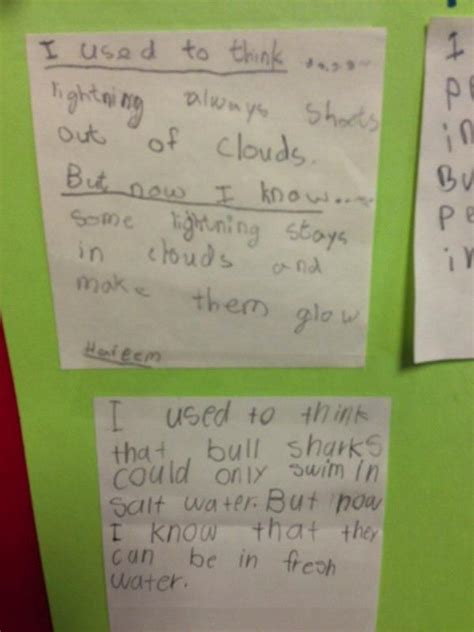 I used to think......
lightning always shoots
out of clouds.
But now I know.....
some lightning stays
in clouds and
make them glow
Hareem
I used to think
that bull sharks
could only swim in
salt water. But now
I know that they
can be in fresh
water.
I
in
Bu
in